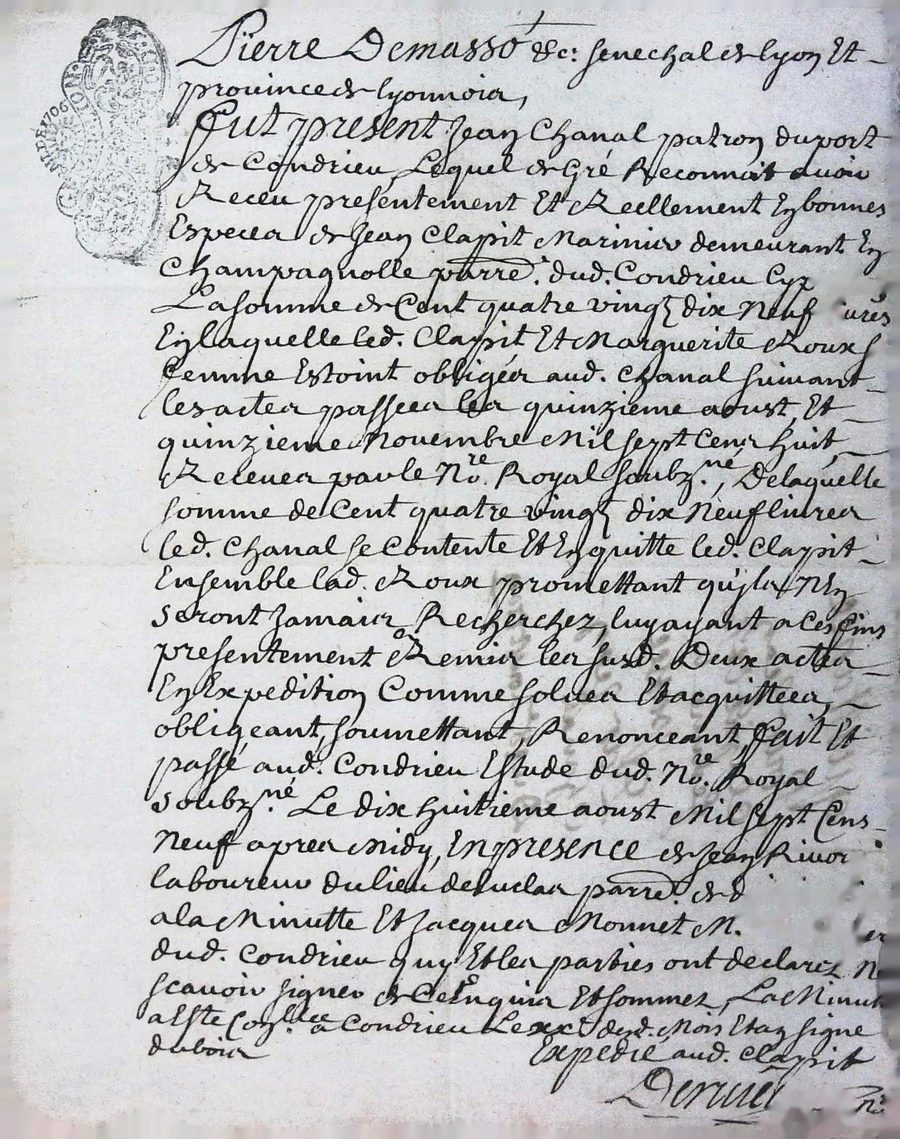 Pierre Demasso &c: senechal de lyon Et
province de lyonnois,
fut present Jean Chanal patron du port
de Condrieu, Lequel de Gré Reconnoit avoir
Receu présentement Et Reellement En bonnes
Especes de Jean Clapit Marinier demeurant En
Champagnolle parre. dud. Condrieu Cy
La somme de Cent quatre vingt dix Neuf ivres
En laquelle led. Clapit Et Marguerite Roux s
femme Estoint obligés aud. Chanal suivant
les actes passees les quinzieme aoust Et
quinzieme Novembre Mil sept Cens huit
Receues par le Nore. Royal soubzné, De laquelle
somme de Cent quatre vingt dix Neuf livres
led. Chanal se Contente Et En quitte led. Clapit
Ensemble lad. Roux promettant qu'jls N'En
seront Jamais Recherchez, luy ayant a Ces fins
presentement Remis les susd. Deux actes
En Expedition Comme solues Et acquittees,
obligeant, soumettant, Renonceant, fait Et
passé aud. Condrieu Estude dud. Nore. Royal
soubzné Le dix huitieme aoust Mil sept Cens
Neuf apres Midy, En presence de Jean Rivor
laboureur du lieu de luclas parre. de d
a la Minutte Et Jacques Monnet M.
dud. Condrieu quy Et les parties ont declarez N
scavoir signer de Ce Enquis Et sommez, La Minut
a Este Conlee a Condrieu Le xxe dud. Mois Et an signe
dubois
Expedié aud. Clapit